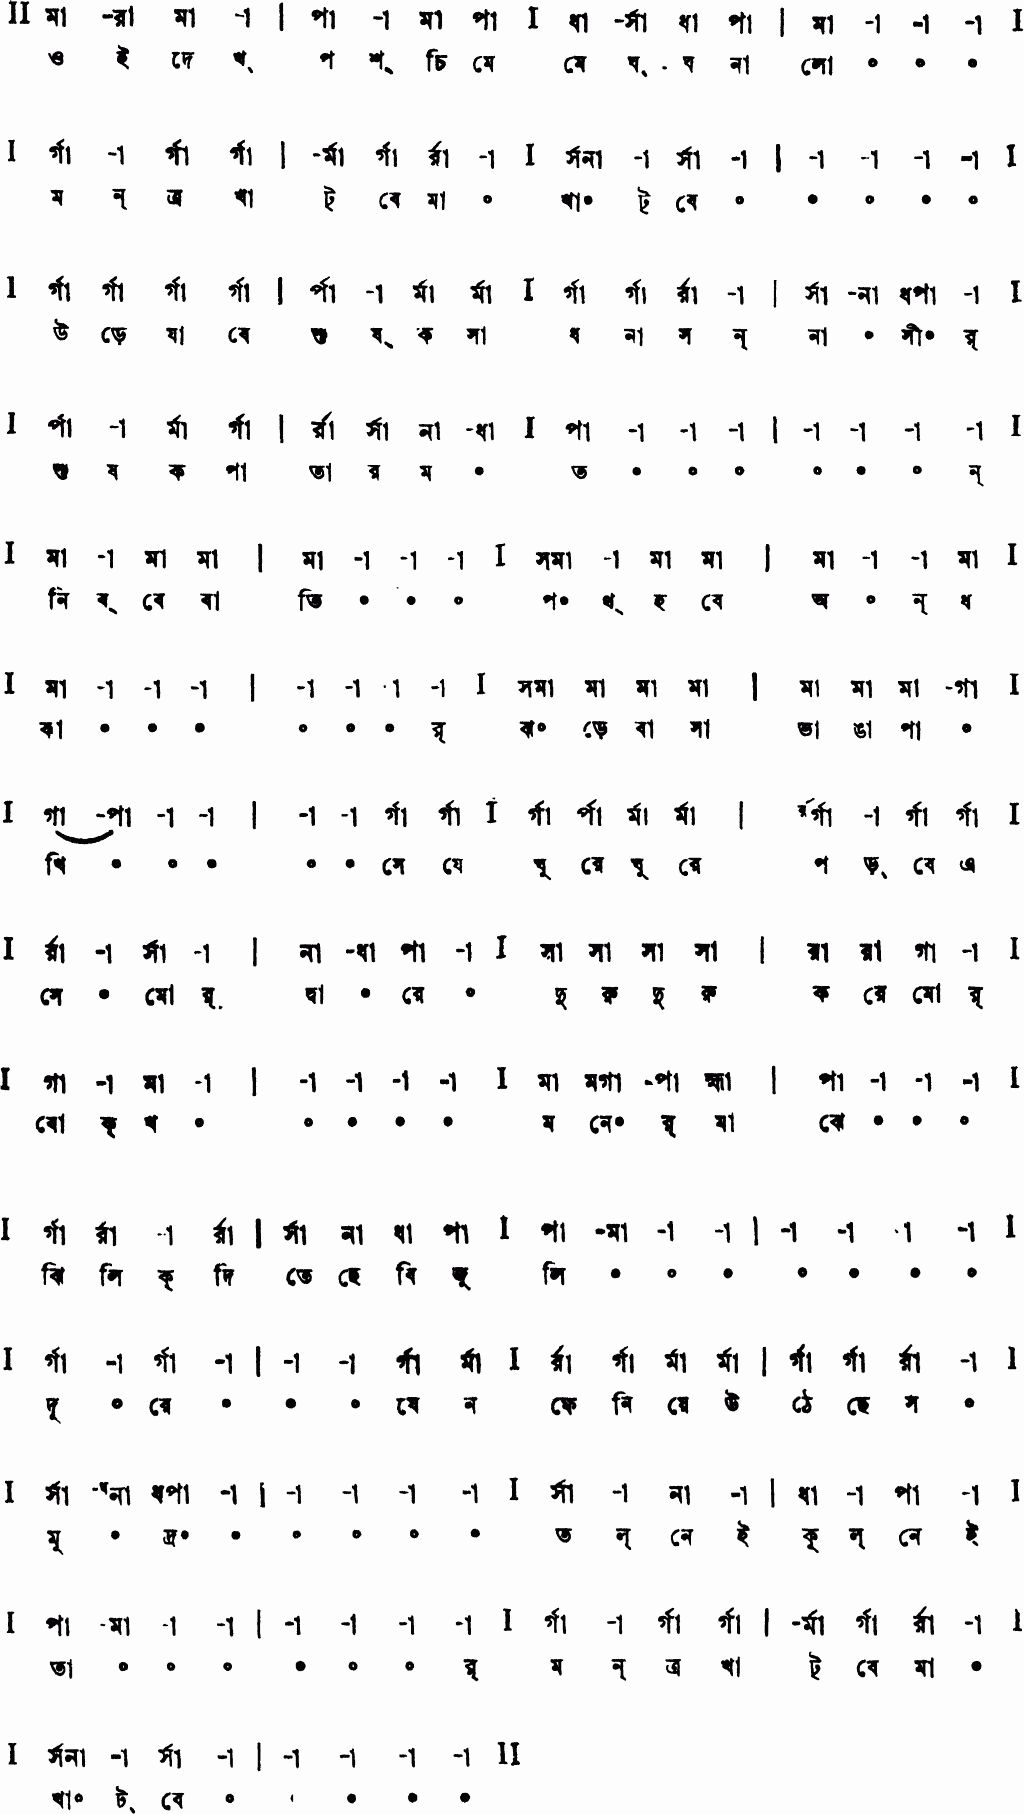 II মা -রা মা -া | পা -া মা পা I ধা -র্সা ধা পা | মা -া -া -া I
ও ই দে খ্ প শ্ চি মে মে ঘ্ ঘ না লো ০ ০ ০
I র্গা -া র্গা র্গা | -র্মা র্গা র্রা -া I র্সনা -া র্সা -া | -া -া -া -া I
ম ন্ ত্র খা ট্ বে মা ০ খা০ ট্ বে ০ ০ ০ ০ ০
I র্গা র্গা র্গা র্গা | র্পা -া র্মা র্মা I র্গা র্গা র্রা -া | র্সা -না ধপা -া I
উ ড়ে যা বে শু ষ্ ক সা ধ না স ন্ না ০ সী০ র্
I র্পা -া র্মা র্গা | র্রা র্সা না -ধা I পা -া -া -া | -া -া -া -া I
শু ষ ক পা তা র ম ০ ত ০ ০ ০ ০ ০ ০ ন্
I মা -া মা মা | মা -া -া -া I সমা -া মা মা | মা -া -া মা I
নি ব্ বে বা তি ০ ০ ০ প০ থ্ হ বে অ ০ ন্ ধ
I মা -া -া -া | -া -া -া -া I সমা মা মা মা | মা মা মা -গা I
কা ০ ০ ০ ০ ০ ০ র্ ঝ০ ড়ে বা সা ভা ঙা পা ০
I গা -পা -া -া | -া -া র্গা র্গা I র্গা র্পা র্মা র্মা | র্রর্গা -া র্গা র্গা I
খি ০ ০ ০ ০ ০ সে যে ঘু রে ঘু রে প ড়্ বে এ
I র্রা -া র্সা -া | না -ধা পা -া I সা সা সা সা | রা রা গা -া I
সে ০ মো র্ দ্বা ০ রে ০ দু রু দু রু ক রে মোর্
I গা -া মা -া | -া -া -া -া I মা মগা -পা হ্মা | পা -া -া -া I
বো ক্ খ ০ ০ ০ ০ ০ ম নে০ র্ মা ঝে ০ ০ ০
I র্গা র্রা -া র্রা | র্সা না ধা পা I পা -মা -া -া | -া -া -া -া I
ঝি লি ক্ দি তে ছে বি জু লি ০ ০ ০ ০ ০ ০ ০
I র্গা -া র্গা -া | -া -া র্গা র্মা I র্রা র্গা র্মা র্মা | র্গা র্গা র্রা -া I
দূ ০ রে ০ ০ ০ যে ন ফে নি য়ে উ ঠে ছে স ০
I র্সা -ধনা ধপা -া | -া -া -া -া I র্সা -া না -া | ধা -া পা -া I
মূ ০ দ্র০ ০ ০ ০ ০ ০ ত ল্ নে ই কূ ল্ নে ই
I পা -মা -া -া | -া -া -া -া I র্গা -া র্গা র্গা | -র্মা র্গা র্রা -া I
তা ০ ০ ০ ০ ০ ০ র্ ম ন্ ত্র খা ট্ বে মা ০
I র্সনা -া র্সা -া | -া -া -া -া II
খা০ ট্ বে ০ ০ ০ ০ ০